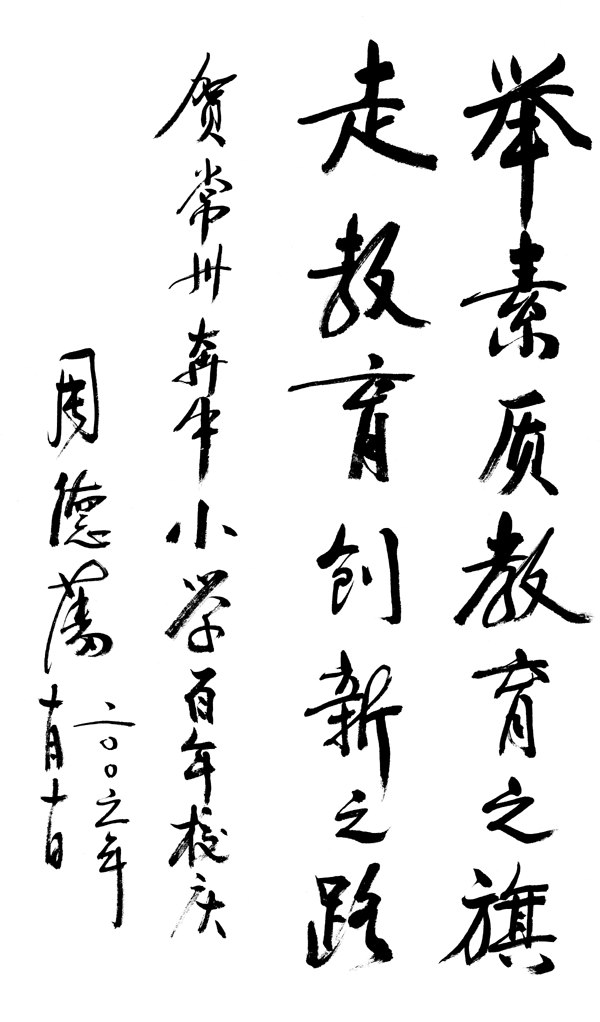 举素质教育之旗
走教育创新之路
贺常州奔牛小学百年校庆
二〇〇三年
周德藩
十月十日